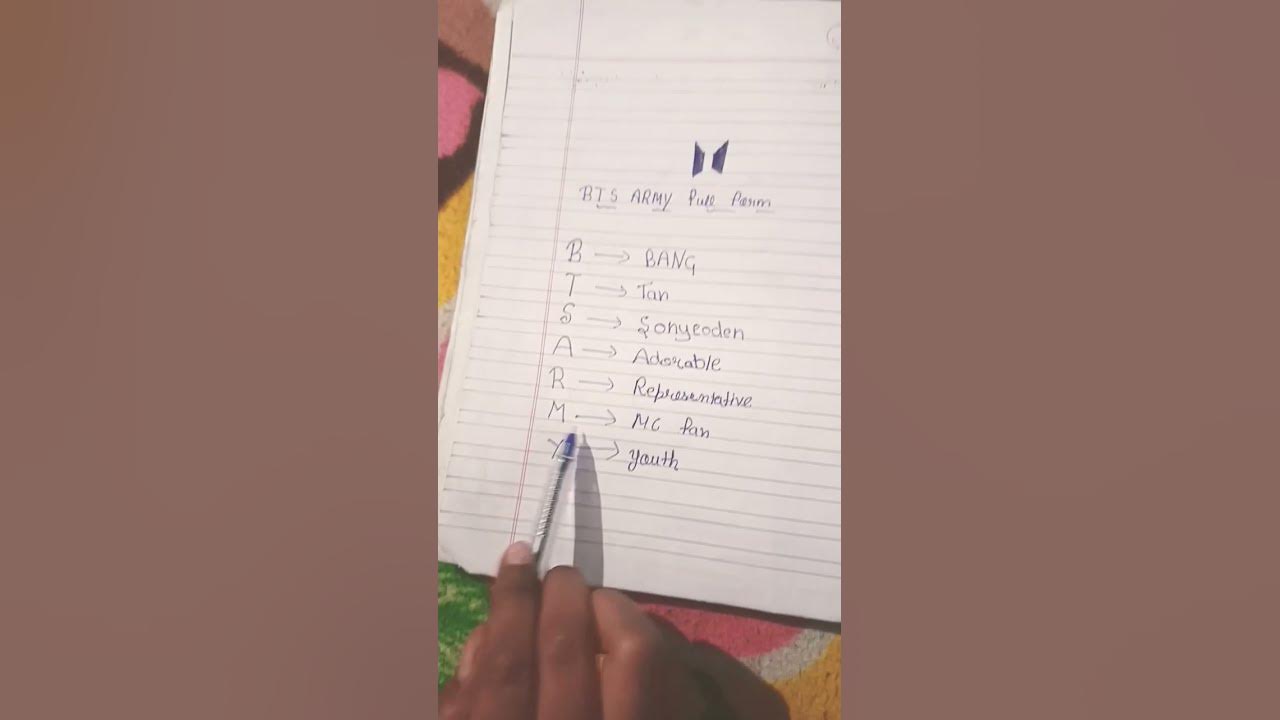 BTS ARMY Full Form
B → BANG
T → Tan
S → Sonyeoden
A → Adorable
R → Representative
M → MC fan
Y → youth